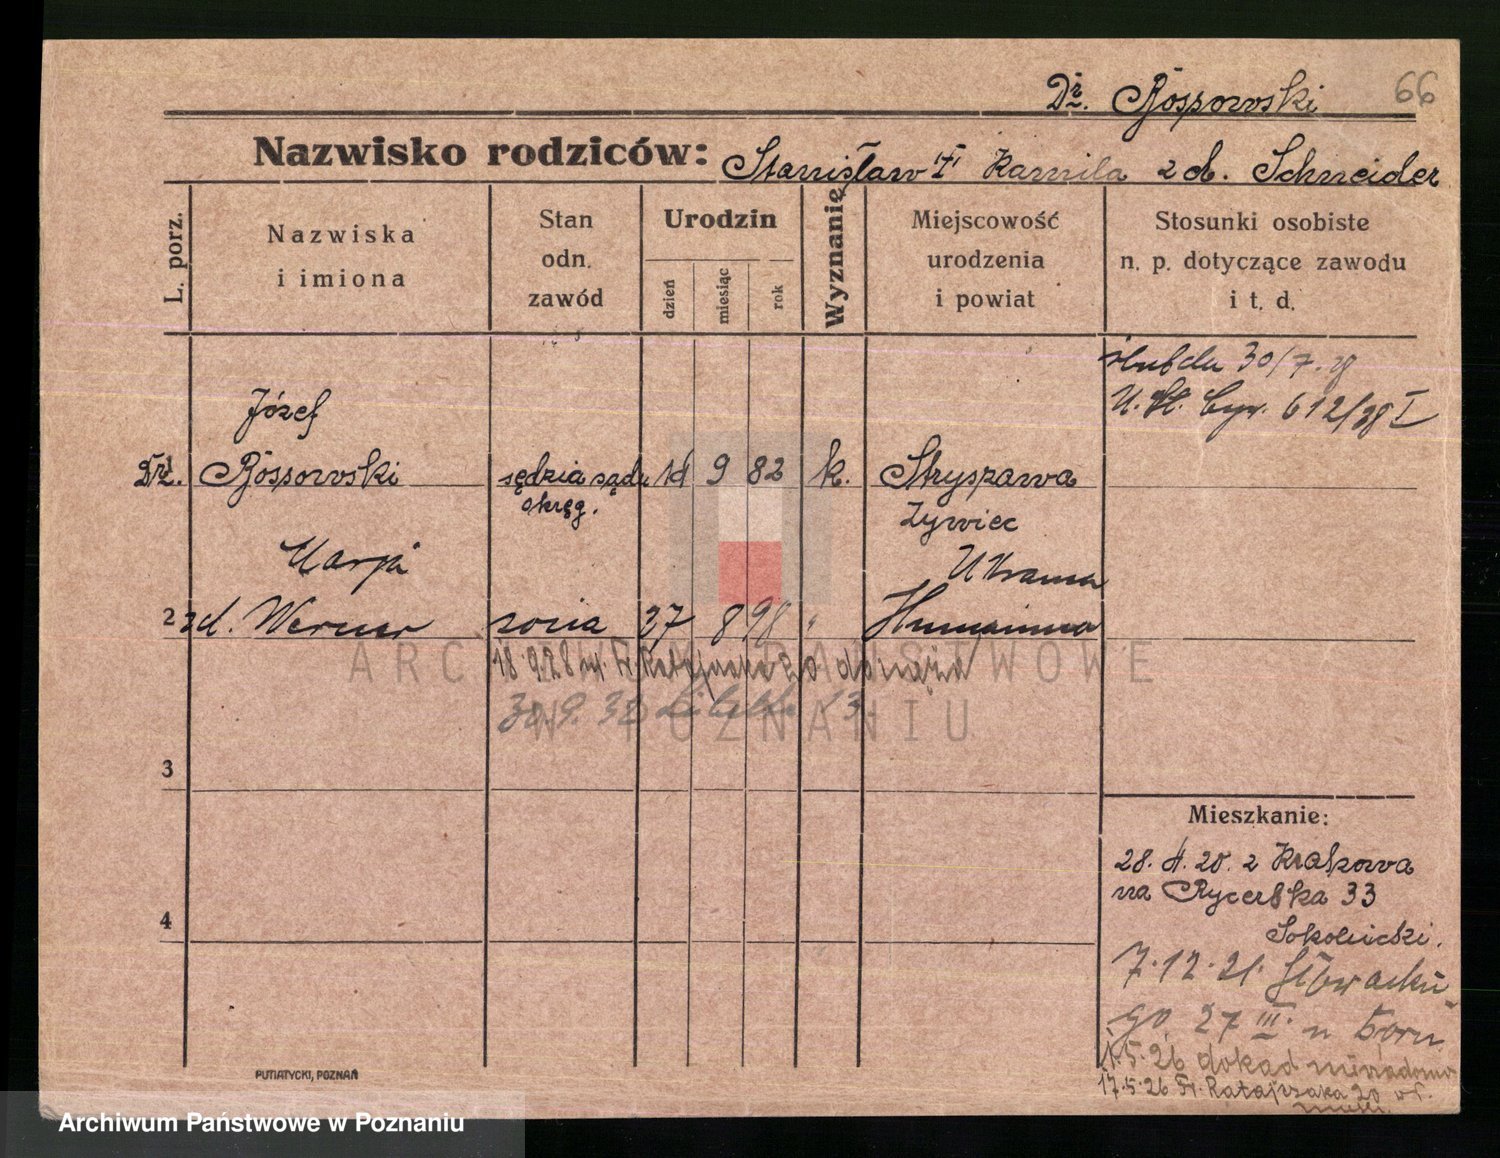 66
Dr. Rossowski
Nazwisko rodziców: Stanisław Kamila z d. Schneider
L. porz.
Nazwiska
i imiona
Stan
odn.
zawód
Urodzin
dzień
miesiąc
rok
Wyznanie
Miejscowość
urodzenia
i powiat
Stosunki osobiste
n. p. dotyczące zawodu
i t. d.
30/7.
612/28 I
Józef
Dr. Rossowski sędzia sądu 14 9 82 k. Stryszawa
okręg. Żywiec
Marja Ukraina
2 zd. Werner żona 27 8 98 " Humanna
18.9.28
30.9.32 13
ARCHIWUM PAŃSTWOWE
W POZNANIU
3
Mieszkanie:
28.4.20. z Krakowa
na Rycerska 33
4
Sokolnicki.
7.12.21. Słowackie-
go 27 III
1.5.26 dokąd niewiadomo
17.5.26 Fr. Ratajczaka 20
PUTIATYCKI, POZNAŃ
Archiwum Państwowe w Poznaniu